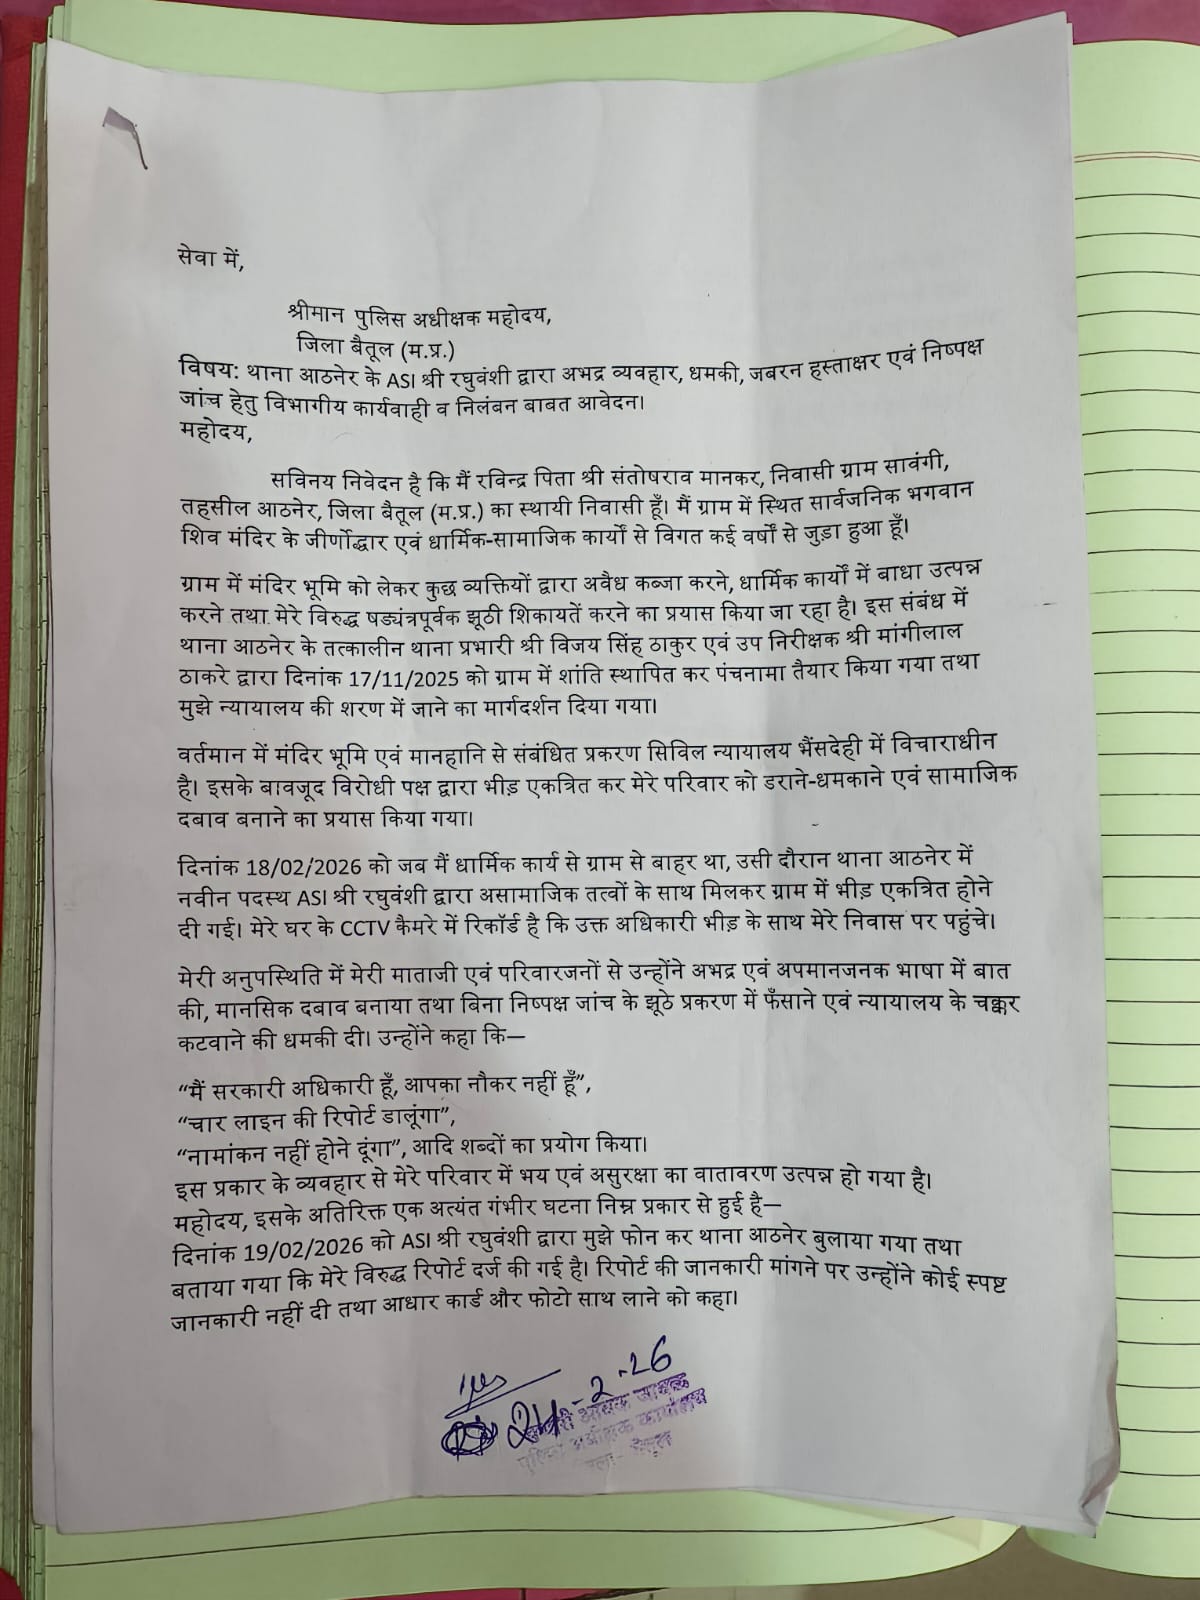 सेवा में,
श्रीमान पुलिस अधीक्षक महोदय,
जिला बैतूल (म.प्र.)
विषय: थाना आठनेर के ASI श्री रघुवंशी द्वारा अभद्र व्यवहार, धमकी, जबरन हस्ताक्षर एवं निष्पक्ष
जांच हेतु विभागीय कार्यवाही व निलंबन बाबत आवेदन।
महोदय,
सविनय निवेदन है कि मैं रविन्द्र पिता श्री संतोषराव मानकर, निवासी ग्राम सावंगी,
तहसील आठनेर, जिला बैतूल (म.प्र.) का स्थायी निवासी हूँ। मैं ग्राम में स्थित सार्वजनिक भगवान
शिव मंदिर के जीर्णोद्धार एवं धार्मिक-सामाजिक कार्यों से विगत कई वर्षों से जुड़ा हुआ हूँ।
ग्राम में मंदिर भूमि को लेकर कुछ व्यक्तियों द्वारा अवैध कब्जा करने, धार्मिक कार्यों में बाधा उत्पन्न
करने तथा मेरे विरुद्ध षड्यंत्रपूर्वक झूठी शिकायतें करने का प्रयास किया जा रहा है। इस संबंध में
थाना आठनेर के तत्कालीन थाना प्रभारी श्री विजय सिंह ठाकुर एवं उप निरीक्षक श्री मांगीलाल
ठाकरे द्वारा दिनांक 17/11/2025 को ग्राम में शांति स्थापित कर पंचनामा तैयार किया गया तथा
मुझे न्यायालय की शरण में जाने का मार्गदर्शन दिया गया।
वर्तमान में मंदिर भूमि एवं मानहानि से संबंधित प्रकरण सिविल न्यायालय भैंसदेही में विचाराधीन
है। इसके बावजूद विरोधी पक्ष द्वारा भीड़ एकत्रित कर मेरे परिवार को डराने-धमकाने एवं सामाजिक
दबाव बनाने का प्रयास किया गया।
दिनांक 18/02/2026 को जब मैं धार्मिक कार्य से ग्राम से बाहर था, उसी दौरान थाना आठनेर में
नवीन पदस्थ ASI श्री रघुवंशी द्वारा असामाजिक तत्वों के साथ मिलकर ग्राम में भीड़ एकत्रित होने
दी गई। मेरे घर के CCTV कैमरे में रिकॉर्ड है कि उक्त अधिकारी भीड़ के साथ मेरे निवास पर पहुंचे।
मेरी अनुपस्थिति में मेरी माताजी एवं परिवारजनों से उन्होंने अभद्र एवं अपमानजनक भाषा में बात
की, मानसिक दबाव बनाया तथा बिना निष्पक्ष जांच के झूठे प्रकरण में फँसाने एवं न्यायालय के चक्कर
कटवाने की धमकी दी। उन्होंने कहा कि—
“मैं सरकारी अधिकारी हूँ, आपका नौकर नहीं हूँ”,
“चार लाइन की रिपोर्ट डालूंगा”,
“नामांकन नहीं होने दूंगा”, आदि शब्दों का प्रयोग किया।
इस प्रकार के व्यवहार से मेरे परिवार में भय एवं असुरक्षा का वातावरण उत्पन्न हो गया है।
महोदय, इसके अतिरिक्त एक अत्यंत गंभीर घटना निम्न प्रकार से हुई है—
दिनांक 19/02/2026 को ASI श्री रघुवंशी द्वारा मुझे फोन कर थाना आठनेर बुलाया गया तथा
बताया गया कि मेरे विरुद्ध रिपोर्ट दर्ज की गई है। रिपोर्ट की जानकारी मांगने पर उन्होंने कोई स्पष्ट
जानकारी नहीं दी तथा आधार कार्ड और फोटो साथ लाने को कहा।
24-2-26
कार्यालय